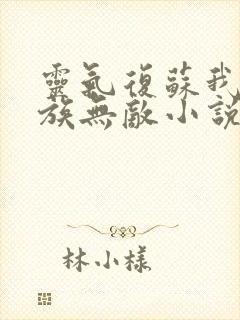 靈氣復蘇我
族無敵小說
林小樣